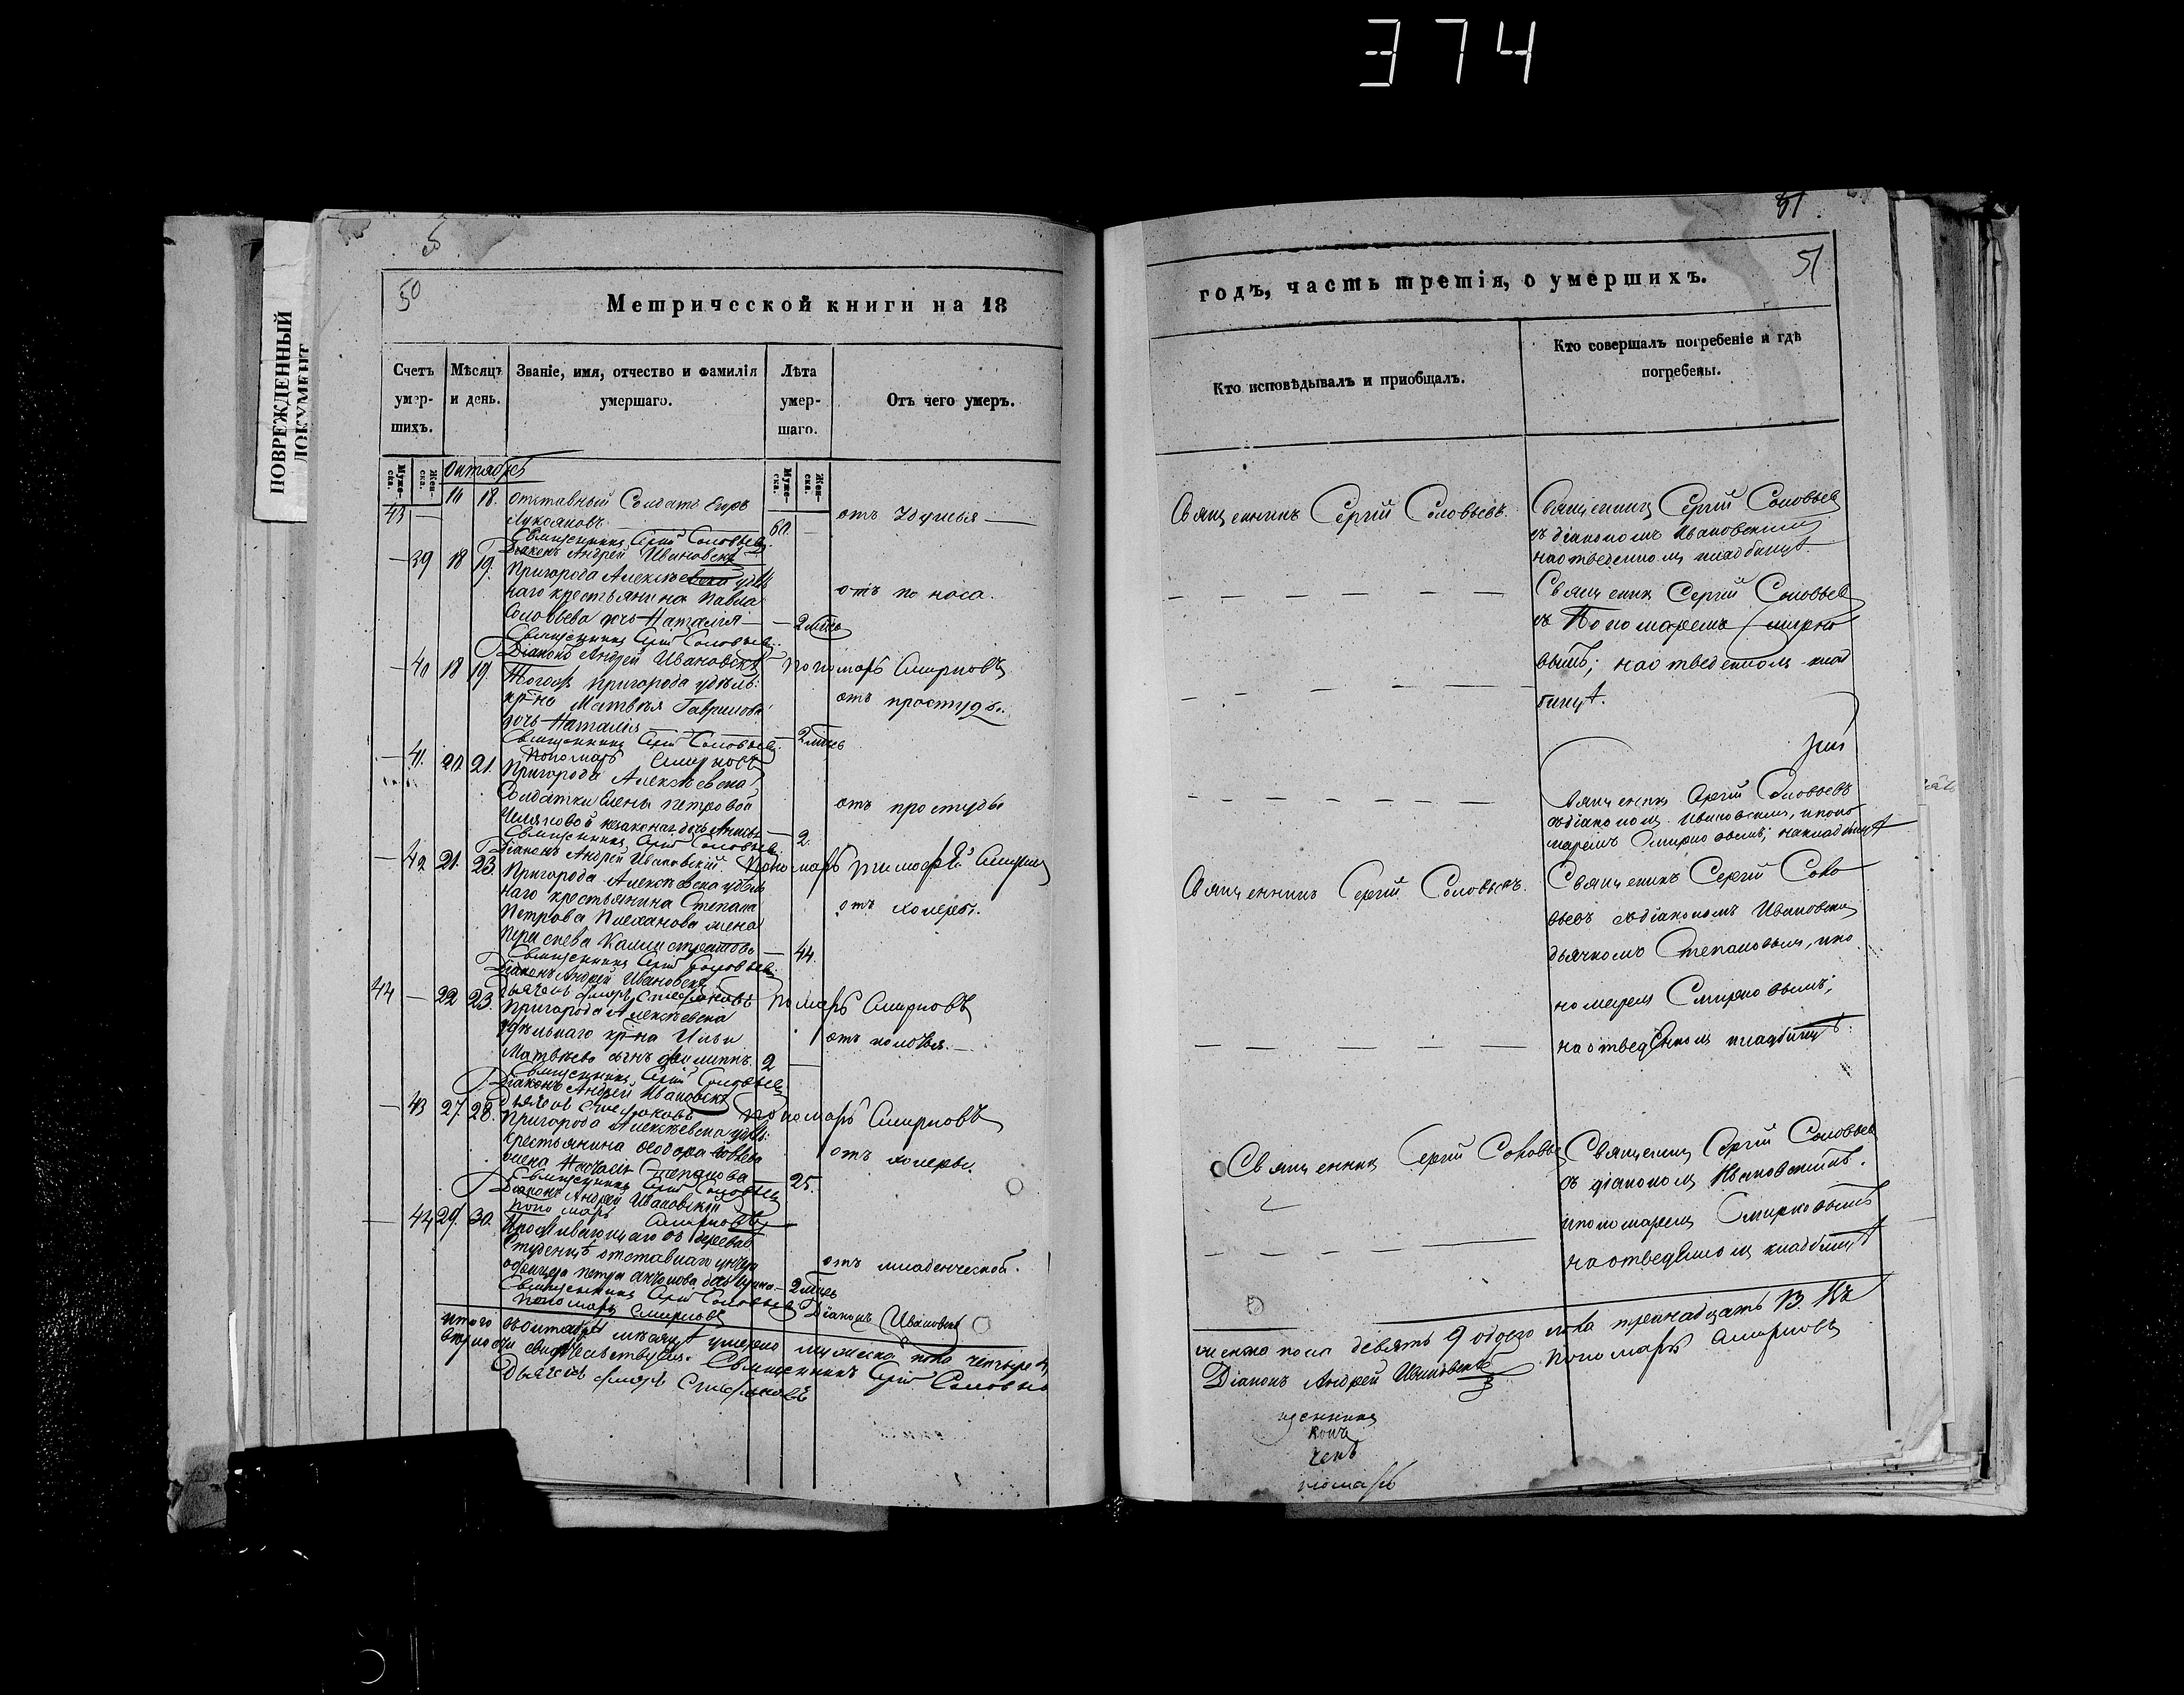 374
ПОВРЕЖДЕННЫЙ
ДОКУМЕНТ
5
50
Метрической книги на 18
Счетъ умер-шихъ.
Мѣсяцъ и день.
Званіе, имя, отчество и фамилія умершаго.
Лѣта умер-шаго.
Отъ чего умеръ.
Муже-ска.
Жен-ска.
Муже-ска.
Жен-ска.
октября
43 — 16 18. отставный Солдатъ Егоръ
Лукояновъ 60. —
Священникъ Сергій Соловьевъ
Діаконъ Андрей Ивановскій
— 39 18 19. Пригорода Алексѣевска удѣль
наго крестьянина Павла отъ поноса.
Соловьева дочь Наталія — 2 мѣсь
Священникъ Сергій Соловьевъ
Діаконъ Андрей Ивановскій пономарь Смирновъ
— 40 18 19. Тогожъ пригорода удѣль:
кр-на Матвѣя Гаврилова отъ простуды.
дочь Наталія — 2 мѣсь
Священникъ Сергій Соловьевъ
Пономарь Смирновъ
— 41. 20 21. Пригорода Алексѣевска
Солдатки Елены Петровой отъ простуды
незаконная дочь — 2.
Священникъ Сергій Соловьевъ
Діаконъ Андрей Ивановскій. Пономарь Тимофей Смирновъ
— 42 21. 23. Пригорода Алексѣевска удѣль
наго крестьянина Степана отъ холеры.
Петрова Плеханова жена
— 44.
Священникъ Сергій Соловьевъ
Діаконъ Андрей Ивановскій
дьячекъ Стефановъ пономарь Смирновъ
44 — 22 23. Пригорода Алексѣевска
удѣльнаго кр-на Ильи
Матвѣева сынъ Филиппъ. 2 —
Священникъ Сергій Соловьевъ
Діаконъ Андрей Ивановскій
дьячекъ Стефановъ пономарь Смирновъ
— 43 27. 28. Пригорода Алексѣевска удѣль:
крестьянина Ѳеодора отъ холеры.
жена Степанова — 25.
Священникъ Сергій Соловьевъ
Діаконъ Андрей Ивановскій
Пономарь Смирновъ
— 44 29. 30. Проживающаго въ деревнѣ
Студенцѣ отставнаго унтеръ отъ младенческой.
офицера Петра дочь — 2 мѣсь
Священникъ Сергій Соловьевъ Діаконъ Ивановскій
Пономарь Смирновъ
Итого въ октябрѣ мѣсяцѣ умерло мужеска пола четыре 4,
Священникъ Сергій Соловьевъ
Дьячекъ Стефановъ
51
51
годъ, часть третія, о умершихъ.
Кто исповѣдывалъ и пріобщалъ.
Кто совершалъ погребеніе и гдѣ погребены.
Священникъ Сергій Соловьевъ.
Священникъ Сергій Соловьевъ
съ діакономъ Ивановскимъ
на отведенномъ кладбищѣ.
Священникъ Сергій Соловьевъ
съ Пономаремъ Смирно
вымъ; на отведенномъ клад
бищѣ.
Священникъ Сергій Соловьевъ
съ діакономъ Ивановскимъ, и поно
маремъ Смирновымъ; на кладбищѣ
Священникъ Сергій Соловьевъ.
Священникъ Сергій Соло
вьевъ съ діакономъ Ивановски
дьячкомъ Степановымъ, и по
номаремъ Смирновымъ;
на отведенномъ кладбищѣ.
Священникъ Сергій Соловье
Священникъ Сергій Соловьевъ
съ діакономъ Ивановскимъ.
и пономаремъ Смирновымъ
на отведенномъ кладбищѣ
женска пола девять 9 обоего пола тринадцать 13.
Діаконъ Андрей Ивановскій Пономарь Смирновъ
щенникъ
конъ
чекъ
номарь